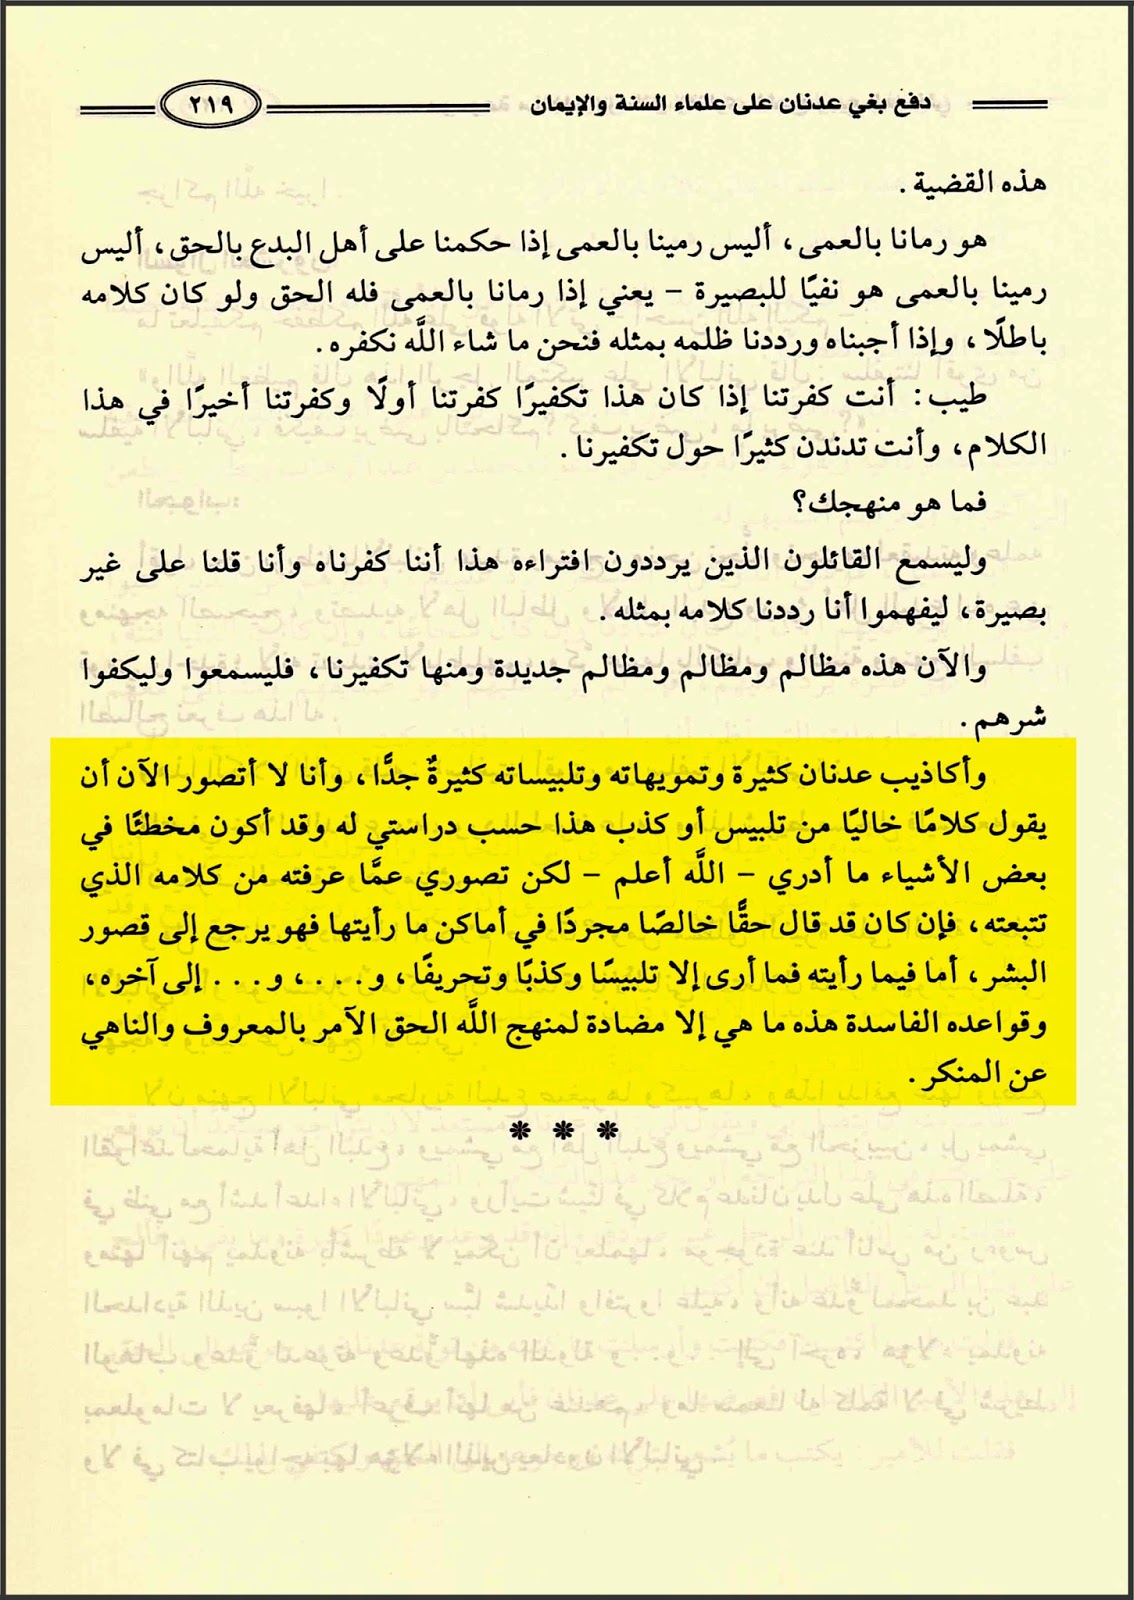 دفع بغي عدنان على علماء السنة والإيمان ٢١٩
هذه القضية .
هو رمانا بالعمى، أليس رمينا بالعمى إذا حكمنا على أهل البدع بالحق، أليس
رمينا بالعمى هو نفيًا للبصيرة – يعني إذا رمانا بالعمى فله الحق ولو كان كلامه
باطلًا، وإذا أجبناه ورددنا ظلمه بمثله فنحن ما شاء اللَّه نكفره .
طيب : أنت كفرتنا إذا كان هذا تكفيرًا كفرتنا أولًا وكفرتنا أخيرًا في هذا
الكلام، وأنت تدندن كثيرًا حول تكفيرنا .
فما هو منهجك؟
وليسمع القائلون الذين يرددون افتراءه هذا أننا كفرناه وأنا قلنا على غير
بصيرة، ليفهموا أنا رددنا كلامه بمثله .
والآن هذه مظالم ومظالم ومظالم جديدة ومنها تكفيرنا، فليسمعوا وليكفوا
شرهم .
وأكاذيب عدنان كثيرة وتمويهاته وتلبيساته كثيرةٌ جدًّا، وأنا لا أتصور الآن أن
يقول كلامًا خاليًا من تلبيس أو كذب هذا حسب دراستي له وقد أكون مخطئًا في
بعض الأشياء ما أدري – اللَّه أعلم – لكن تصوري عمَّا عرفته من كلامه الذي
تتبعته، فإن كان قد قال حقًّا خالصًا مجردًا في أماكن ما رأيتها فهو يرجع إلى قصور
البشر، أما فيما رأيته فما أرى إلا تلبيسًا وكذبًا وتحريفًا، و . . . ، و . . . إلى آخره،
وقواعده الفاسدة هذه ما هي إلا مضادة لمنهج اللَّه الحق الآمر بالمعروف والناهي
عن المنكر .
* * *